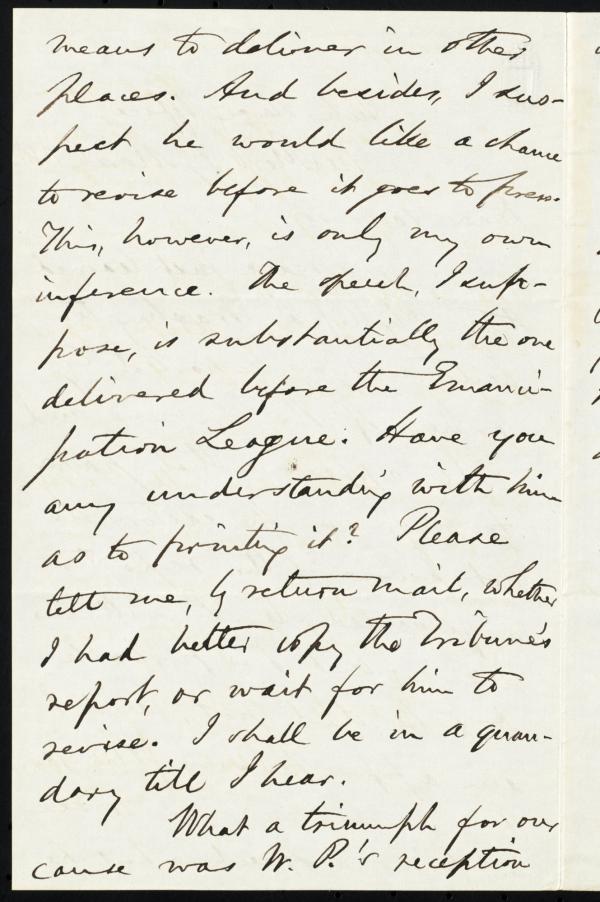 means to deliver in other
places. And besides, I sus-
pect he would like a chance
to revise before it goes to press.
This, however, is only my own
inference. The speech, I sup-
pose, is substantially the one
delivered before the Emanci-
pation League. Have you
any understanding with him
as to printing it? Please
tell me, by return mail, whether
I had better copy the Tribune's
report, or wait for him to
revise. I shall be in a quan-
dary till I hear.
What a triumph for our
cause was W. P.'s reception